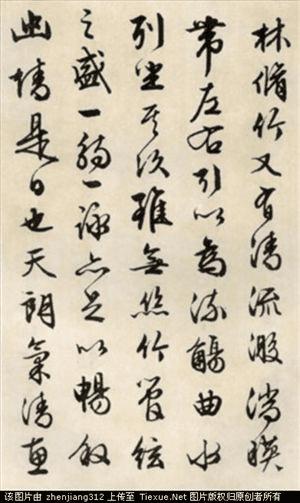 林脩竹又有清流激湍暎
帶左右引以為流觴曲水
列坐其次雖無絲竹管絃
之盛一觴一詠亦足以暢敘
幽情是日也天朗氣清惠
该图片由 zhenjiang312 上传至 Tiexue.Net 图片版权归原创者所有